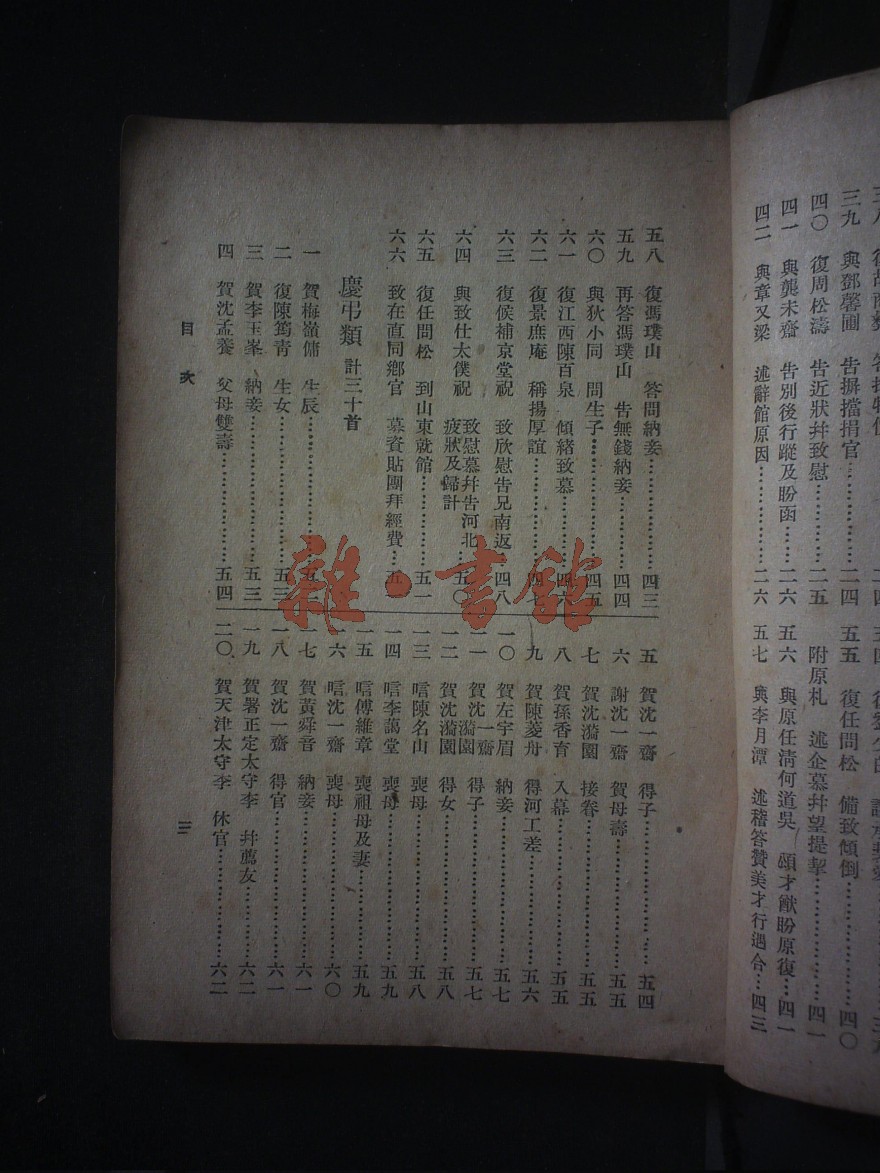 四〇 復周松濤 告近狀幷致慰……二五
四一 與龔未齋 告別後行蹤及盼函……二六
四二 與章又梁 述辭館原因……二六
五五 復任問松 備致傾倒……四〇
附原札 述企慕幷望提挈……四一
五六 與原任淸何道吳 頌才猷盼原復…四一
五七 與李月潭 述稽答贊美才行遇合…四三
五八 復馮璞山 答問納妾……四三
五九 再答馮璞山 告無錢納妾……四四
六〇 與狄小同 問生子……四五
六一 復江西陳百泉 傾緒致慕……四六
六二 復景庶庵 稱揚厚誼……四七
六三 復候補京堂祝 致欣慰告兄南返 四八
六四 與致仕太僕祝 致慰慕幷告河北疲狀及歸計…五〇
六五 復任問松 到山東就館……五一
六六 致在直同鄉官 募資貼團拜經費…五
慶弔類 計三十首
一 賀梅嶺傭 生辰……五
二 復陳筠青 生女……五三
三 賀李玉峯 納妾……五三
四 賀沈孟養 父母雙壽……五四
五 賀沈一齋 得子……五四
六 謝沈一齋 賀母壽……五五
七 賀沈漪園 接眷……五五
八 賀孫香育 入幕……五五
九 賀陳菱舟 得河工差……五六
一〇 賀左宇眉 納妾……五七
一一 賀沈一齋漪園 得子……五七
一二 賀沈漪園 得女……五八
一三 唁陳名山 喪母……五八
一四 唁李藹堂 喪母……五九
一五 唁傅維章 喪祖母及妻……五九
一六 唁沈一齋 喪母……六〇
一七 賀黃舜音 納妾……六一
一八 賀沈一齋 得官……六一
一九 賀署正定太守李 幷薦友……六二
二〇 賀天津太守李 休官……六二
目次
三
雜·書館